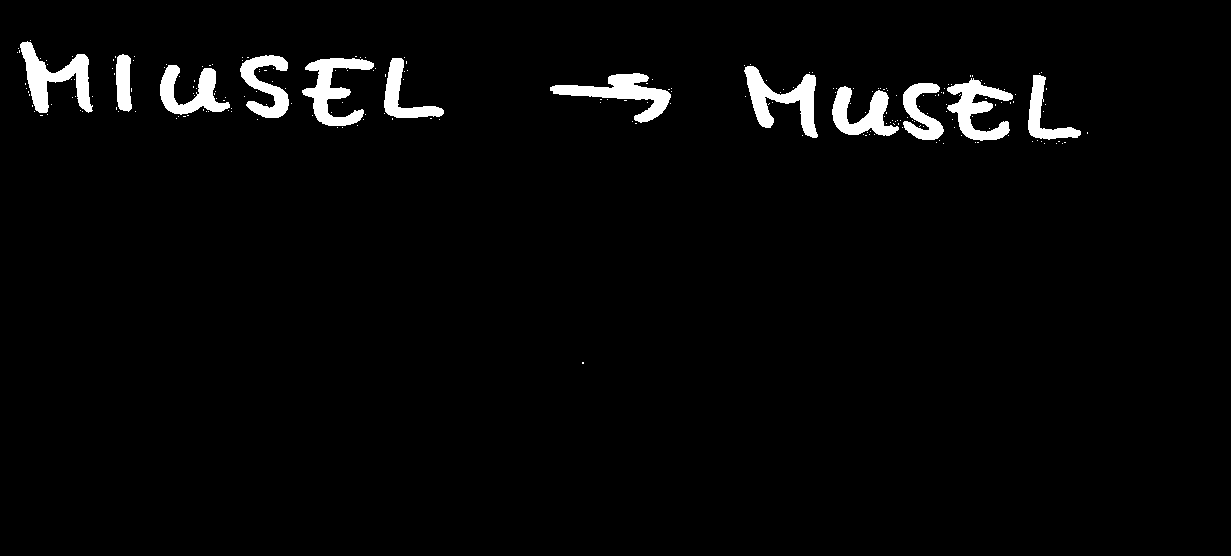 MIUSEL → MUSEL